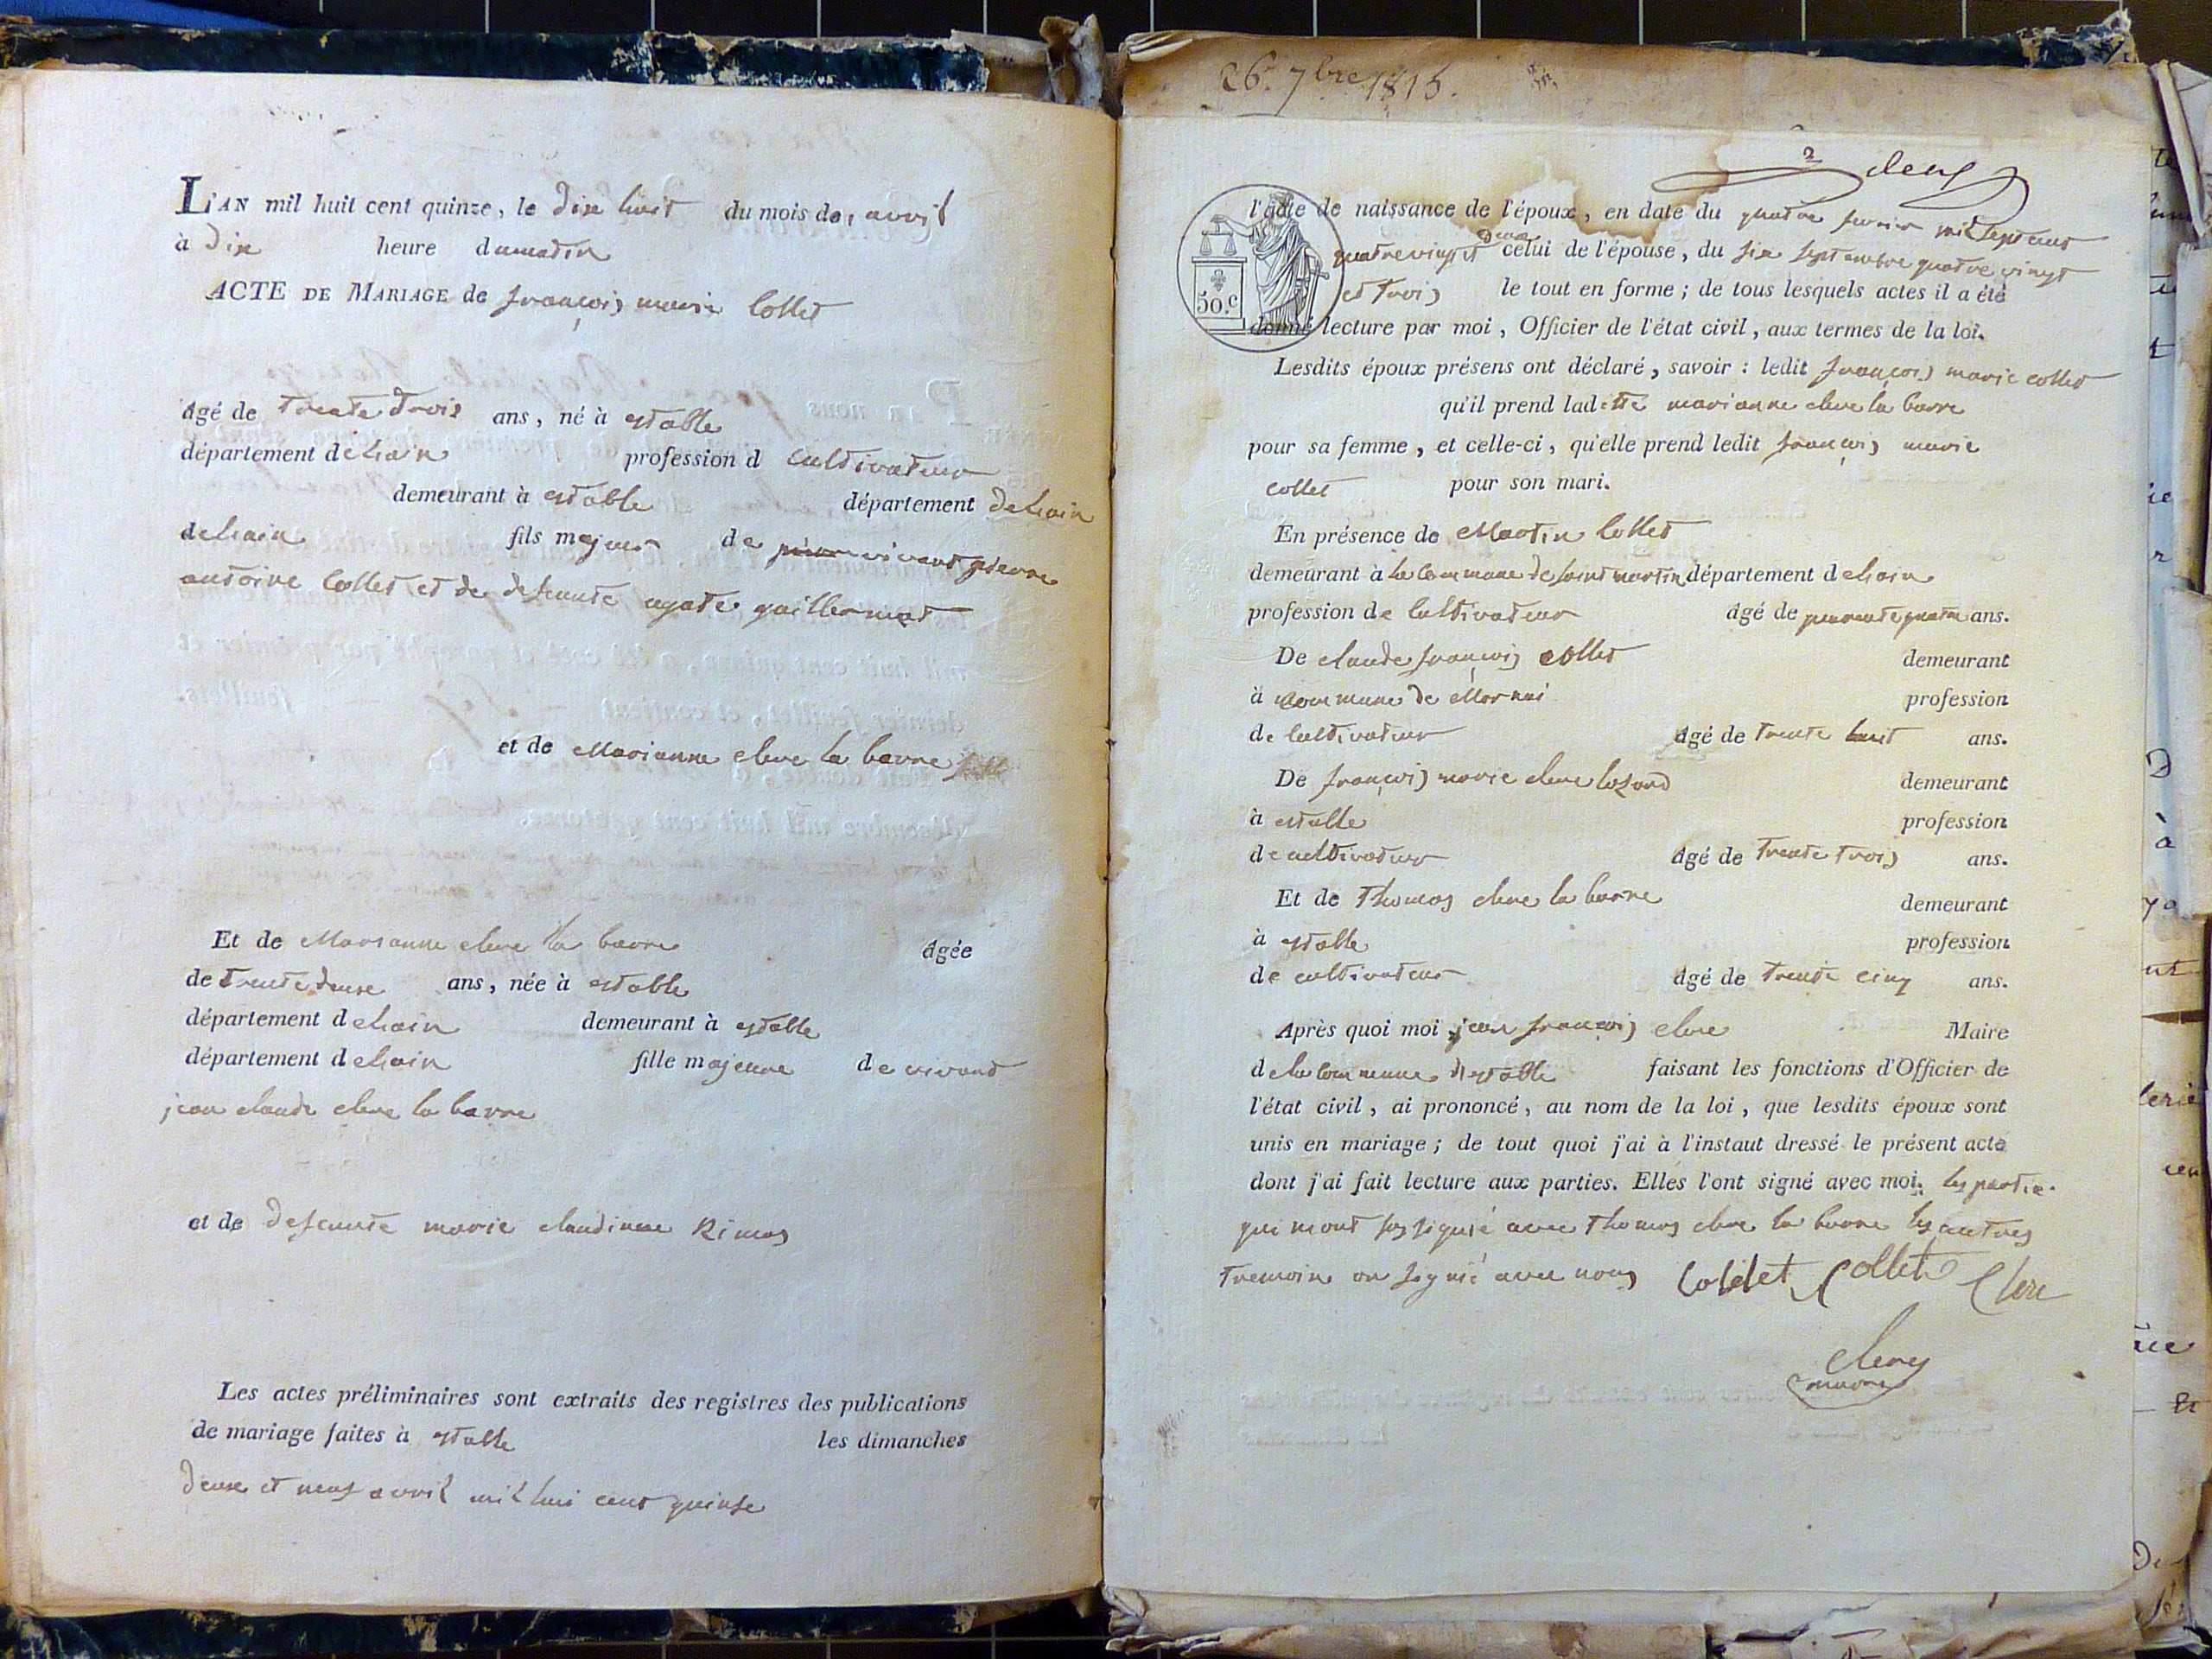 L'AN mil huit cent quinze, le dise huit du mois de, avril
à dise heure du matin
ACTE DE MARIAGE de françois marie Collet
âgé de trente trois ans, né à estable
département de hain profession d Cultivateur
demeurant à estable département de hain
de hain fils majeur de vivant pierre
antoine Collet et de defeunte agate guillermet
et de Marianne clerc la barre
Et de Marianne clerc la barre âgée
de trente deuse ans, née à estable
département de hain demeurant à estable
département de hain fille majeure de vivant
jean claude clerc la barre
et de defeunte marie claudinne Rimos
Les actes préliminaires sont extraits des registres des publications
de mariage faites à estable les dimanches
deuse et neuf avril mil hui cent quinse
26. 7bre 1815.
2 deux
l'acte de naissance de l'époux, en date du quatre fevrier mil sept cent
quatrevingt et deux celui de l'épouse, du six septembre quatre vingt
et trois le tout en forme ; de tous lesquels actes il a été
50.c
donné lecture par moi, Officier de l'état civil, aux termes de la loi.
Lesdits époux présens ont déclaré, savoir : ledit françois marie collet
qu'il prend laditte marianne clerc la barre
pour sa femme, et celle-ci, qu'elle prend ledit françois marie
collet pour son mari.
En présence de Martin Collet
demeurant à la Commune de saint martin département de hain
profession de Cultivateur âgé de quarante quatre ans.
De claude françois Collet demeurant
à commune de Mornai profession
de Cultivateur âgé de trente huit ans.
De françois marie clerc lozard demeurant
à estable profession
de cultivateur âgé de trente trois ans.
Et de Thomas clerc la barre demeurant
à estable profession
de cultivateur âgé de trente cinq ans.
Après quoi moi jean françois clerc Maire
de la commune d'estable faisant les fonctions d'Officier de
l'état civil, ai prononcé, au nom de la loi, que lesdits époux sont
unis en mariage ; de tout quoi j'ai à l'instaut dressé le présent acte
dont j'ai fait lecture aux parties. Elles l'ont signé avec moi. les partie
qui mont pas signié avec Thomas clerc la barre les autres
tremoins on signié avec nous Collet Collet Clerc
Clerc
maire